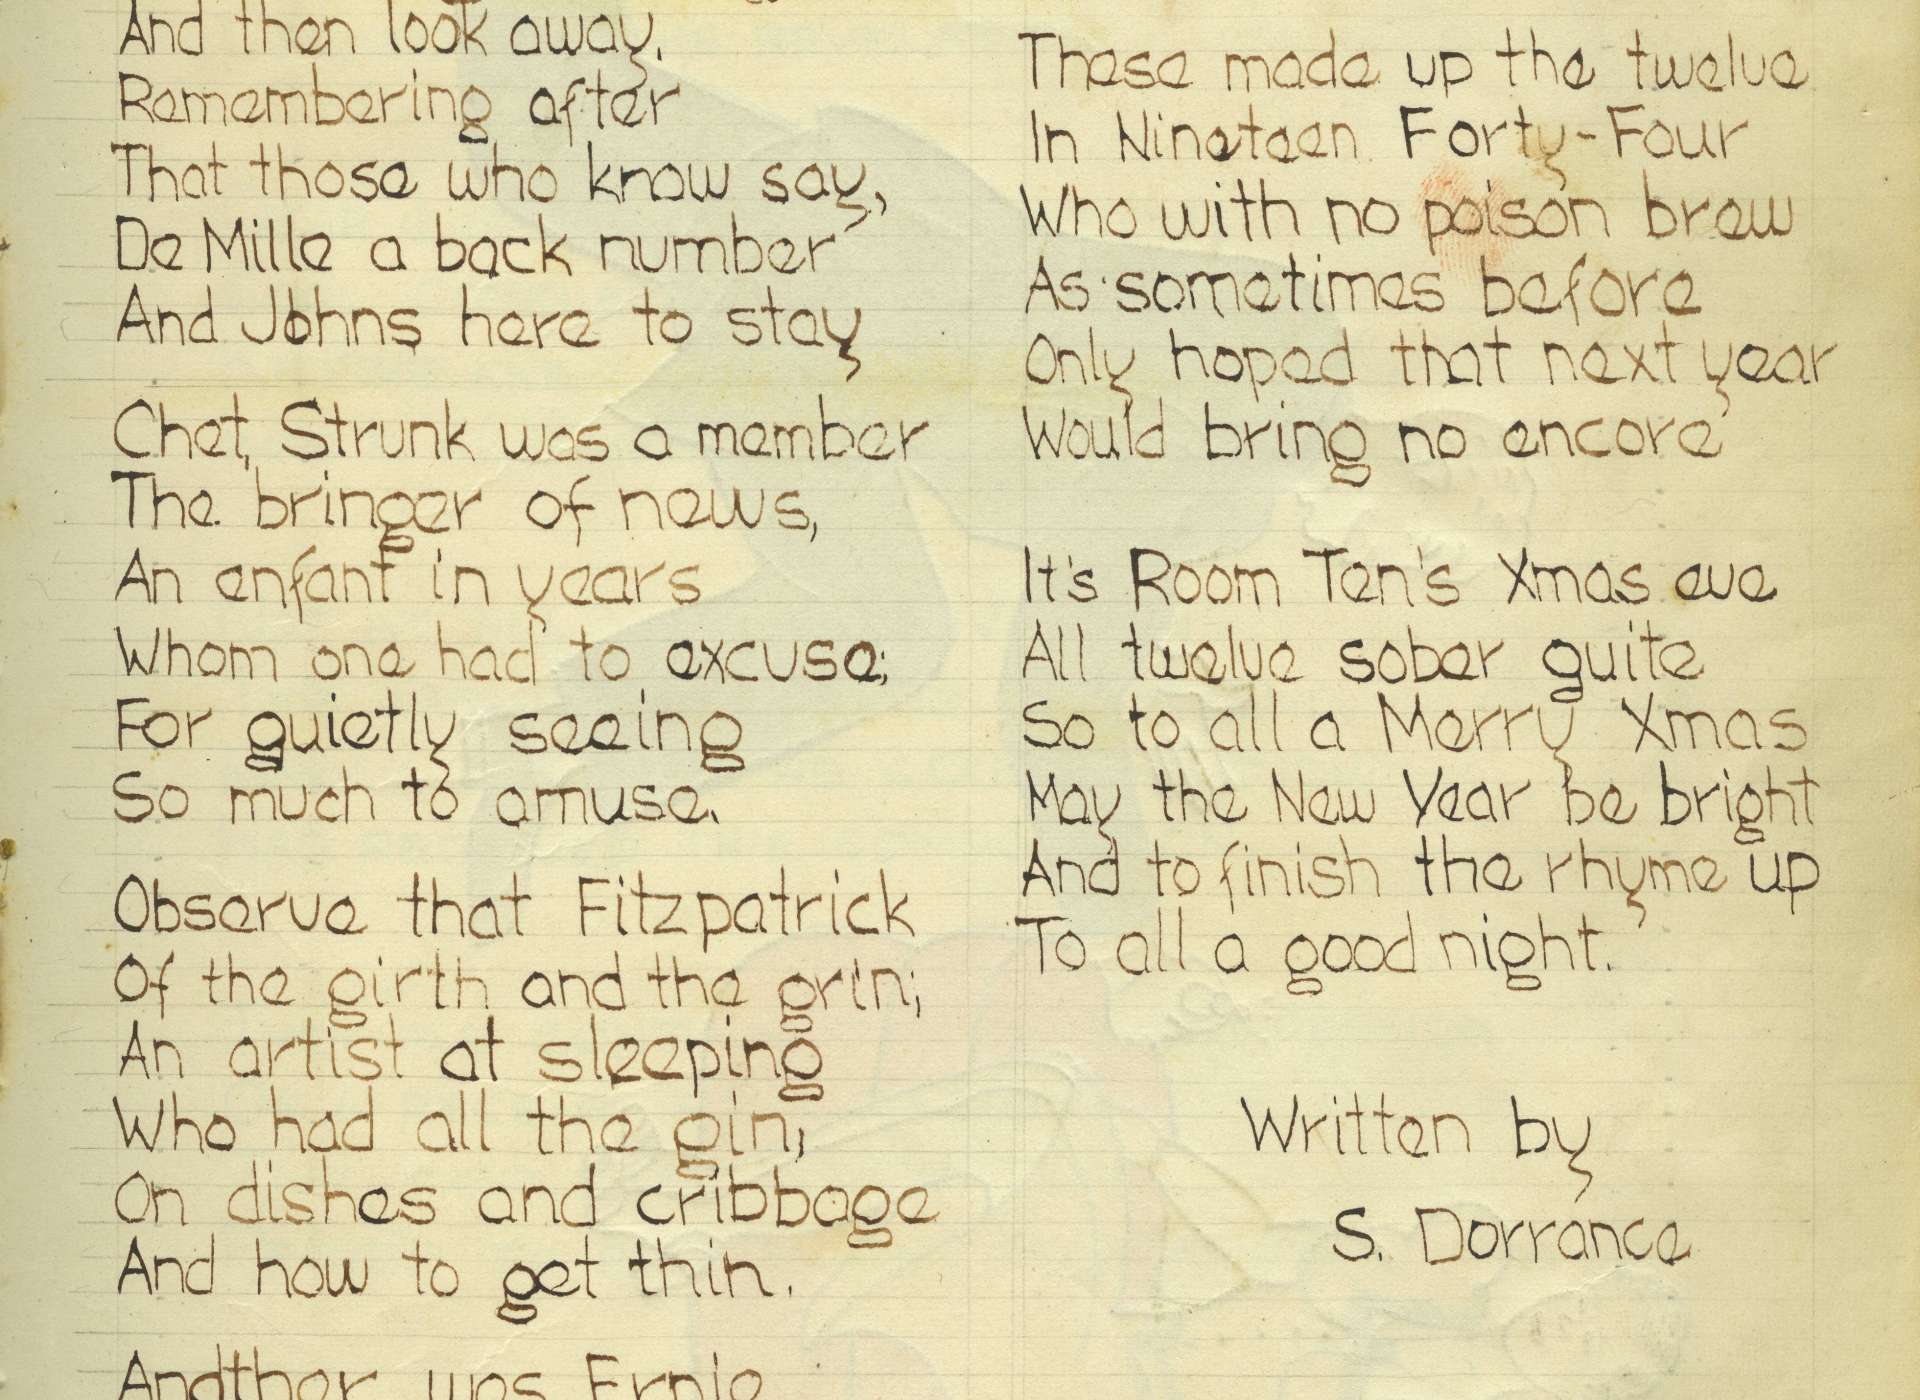 And then look away.
Remembering after
That those who know say,
De Mille a back number
And Johns here to stay
Chet, Strunk was a member
The bringer of news,
An enfant in years
Whom one had to excuse;
For quietly seeing
So much to amuse.
Observe that Fitzpatrick
Of the girth and the grin;
An artist at sleeping
Who had all the gin;
On dishes and cribbage
And how to get thin.
Andther was Ernie
These made up the twelve
In Nineteen Forty-Four
Who with no poison brew
As sometimes before
Only hoped that next year
Would bring no encore
It's Room Ten's Xmas eve
All twelve sober quite
So to all a Merry Xmas
May the New Year be bright
And to finish the rhyme up
To all a good night.
Written by
S. Dorrance